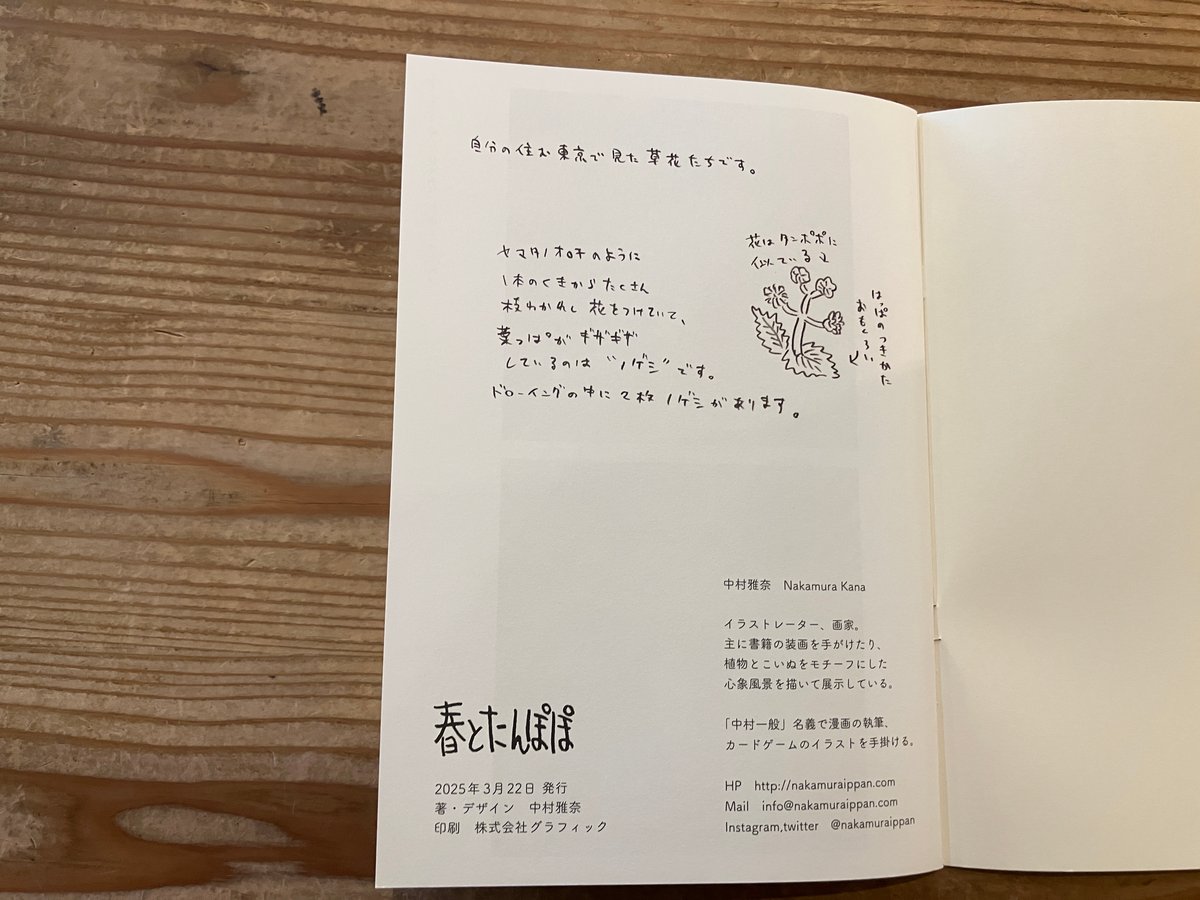 自分の住む東京で見た草花たちです。
ヤマタノオロチのように
1本のくきからたくさん
枝わかれし花をつけていて、
葉っぱがギザギザ
しているのは"ノゲシ"です。
ドローイングの中に2枚ノゲシがあります。
花はタンポポに
似ている
はっぱのつきかた
おもしろい
中村雅奈 Nakamura Kana
イラストレーター、画家。
主に書籍の装画を手がけたり、
植物とこいぬをモチーフにした
心象風景を描いて展示している。
「中村一般」名義で漫画の執筆、
カードゲームのイラストを手掛ける。
HP http://nakamuraippan.com
Mail info@nakamuraippan.com
Instagram,twitter @nakamuraippan
春とたんぽぽ
2025年3月22日 発行
著・デザイン 中村雅奈
印刷 株式会社グラフィック